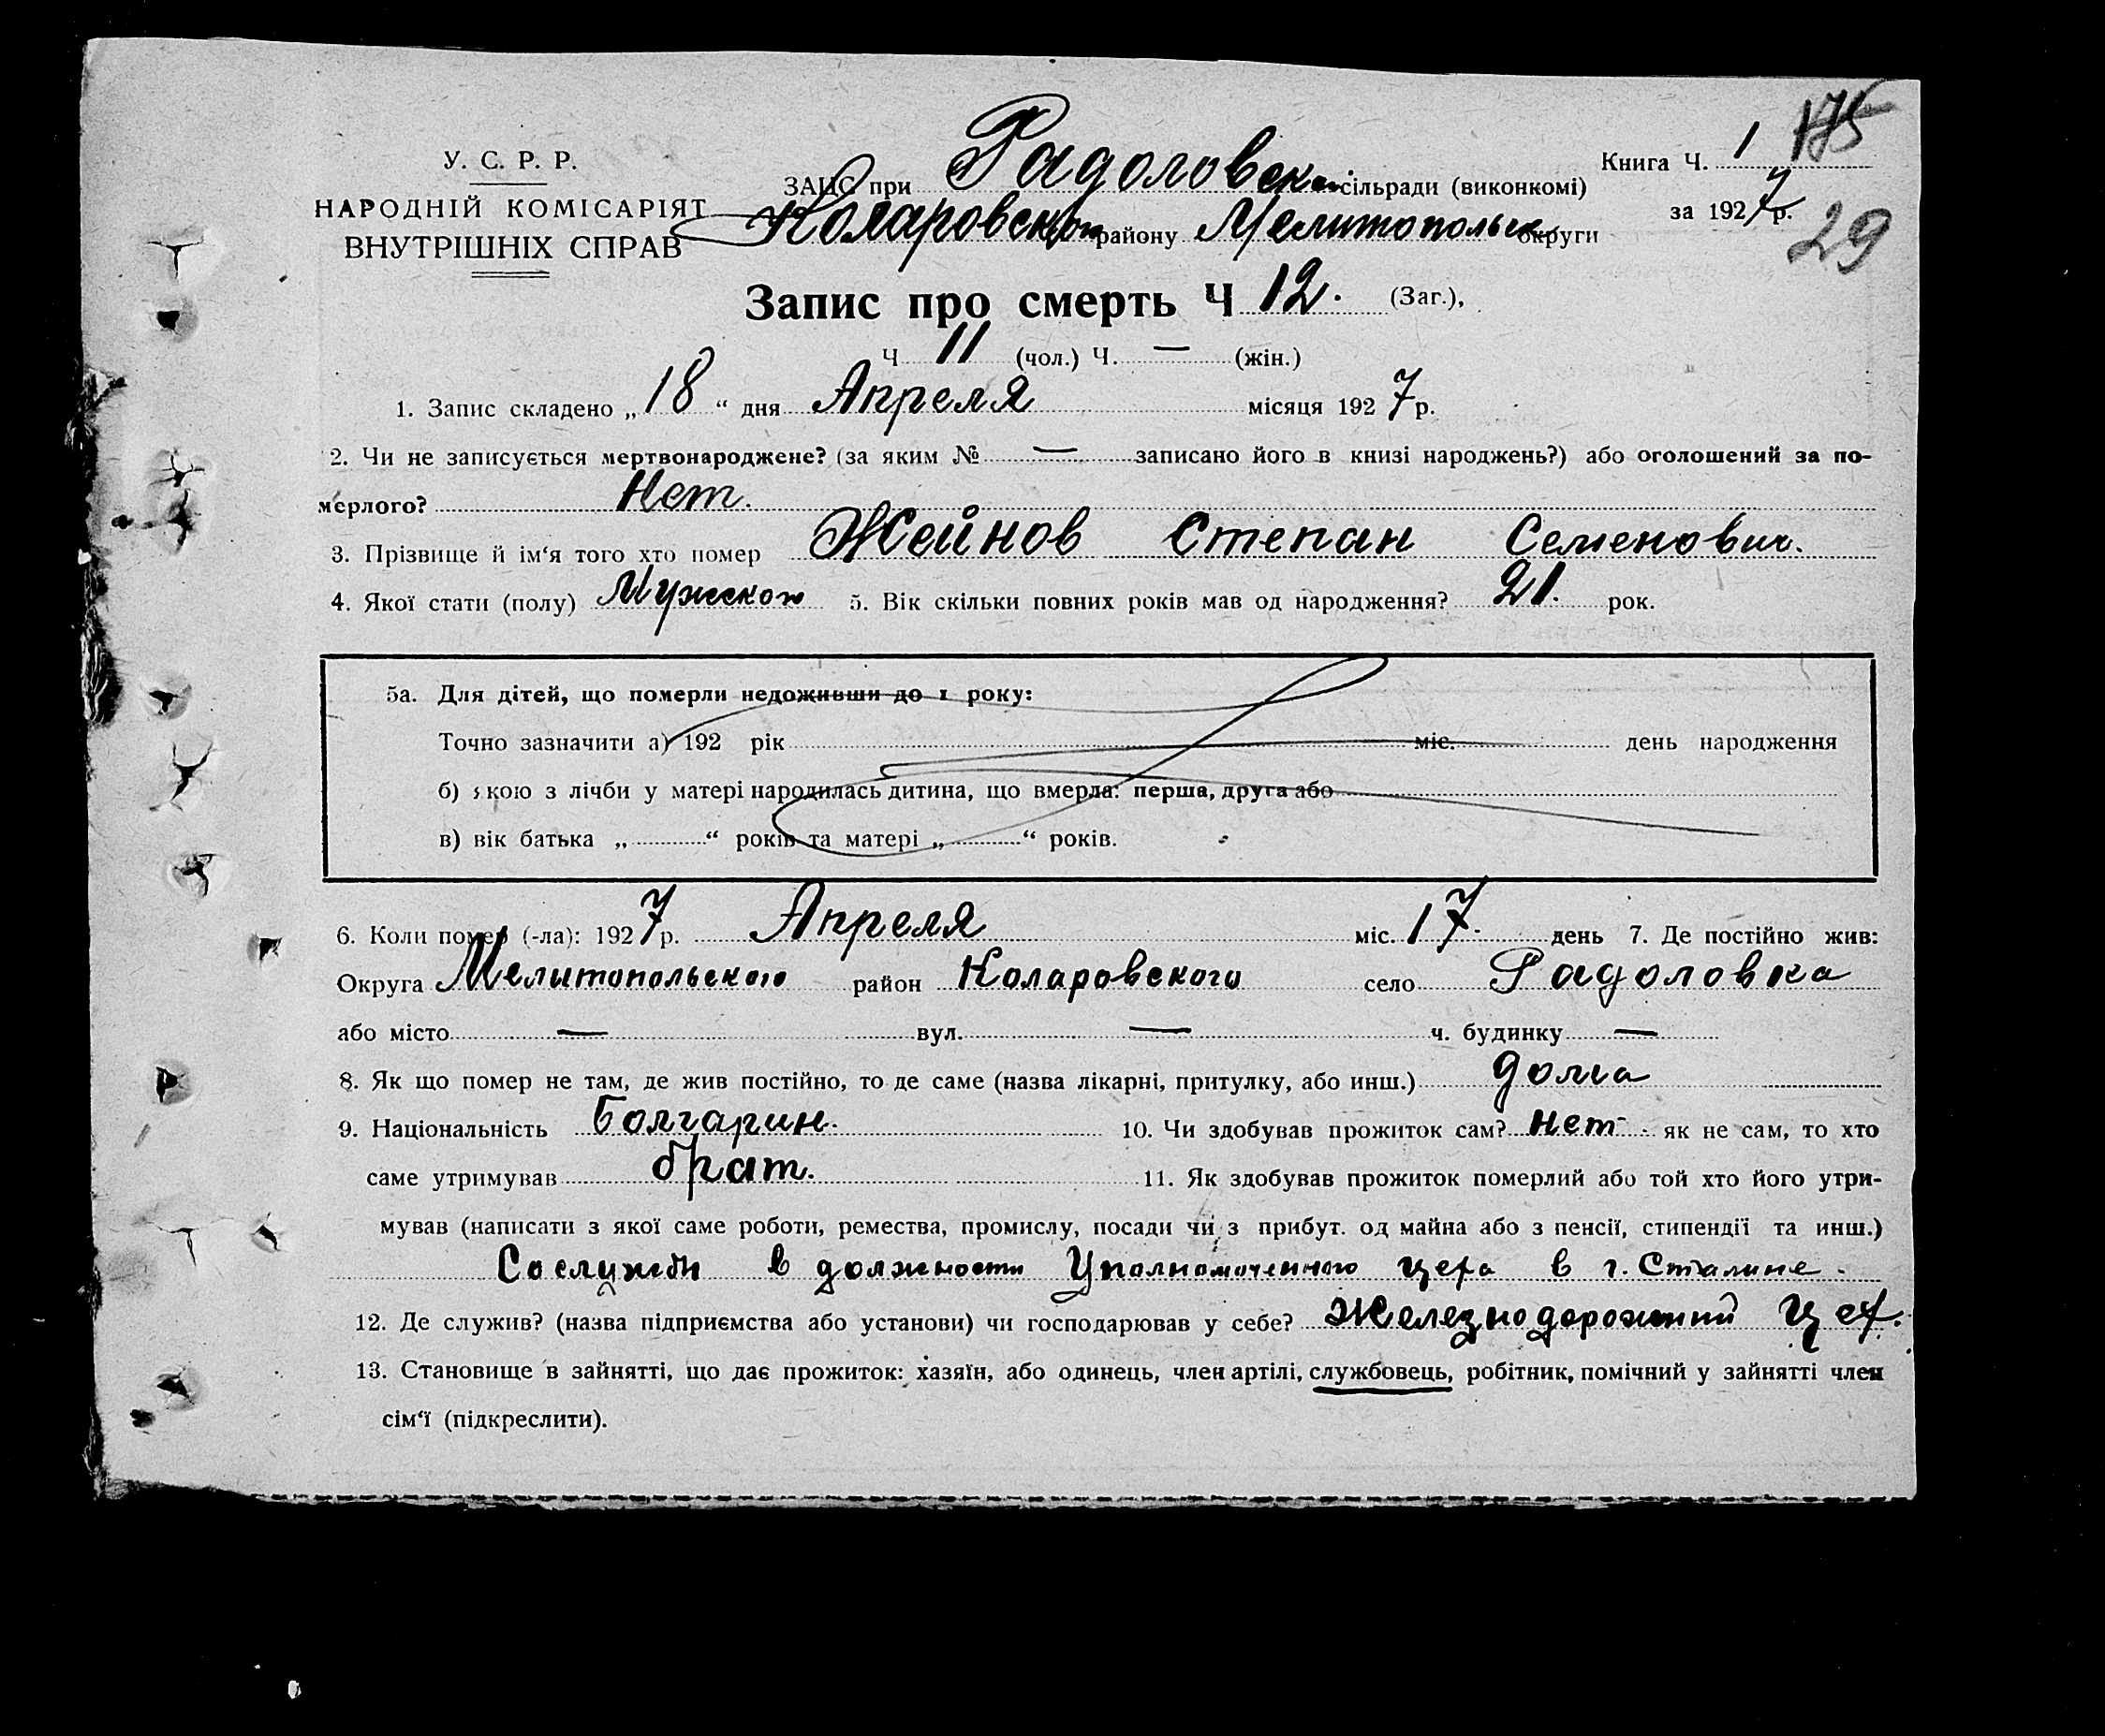 Книга Ч. 1 175
У. С. Р. Р.
ЗАЦС при Радоловском сільради (виконкомі)
за 1927 р.
29
НАРОДНІЙ КОМІСАРІЯТ
ВНУТРІШНІХ СПРАВ
Коларовском району Мелитопольск округи
Запис про смерть Ч 12. (Заг.),
Ч 11 (чол.) Ч. — (жін.)
1. Запис складено „ 18 “ дня Апреля місяця 1927 р.
2. Чи не записується мертвонароджене? (за яким № — записано його в книзі народжень?) або оголошений за по-
мерлого? Нет.
3. Прізвище й ім‘я того хто помер Жейнов Степан Семенович.
4. Якої стати (полу) Мужской 5. Вік скільки повних років мав од народження? 21. рок.
5а. Для дітей, що померли недоживши до 1 року:
Точно зазначити а) 192 рік міс. день народження
б) якою з лічби у матері народилась дитина, що вмерла: перша, друга або
в) вік батька „ “ років та матері „ “ років.
6. Коли помер (-ла): 1927 р. Апреля міс. 17. день 7. Де постійно жив:
Округа Мелитопольского район Коларовского село Радоловка
або місто — вул. — ч. будинку —
8. Як що помер не там, де жив постійно, то де саме (назва лікарні, притулку, або инш.) дома
9. Національність Болгарин. 10. Чи здобував прожиток сам? нет. як не сам, то хто
саме утримував брат. 11. Як здобував прожиток померлий або той хто його утри-
мував (написати з якої саме роботи, ремества, промислу, посади чи з прибут. од майна або з пенсії, стипендії та инш.)
Со службы в должности Уполномоченного цеха в г. Сталине.
12. Де служив? (назва підприємства або установи) чи господарював у себе? Железнодорожний Цех.
13. Становище в зайнятті, що дає прожиток: хазяїн, або одинець, член артілі, службовець, робітник, помічний у зайнятті член
сім‘ї (підкреслити).